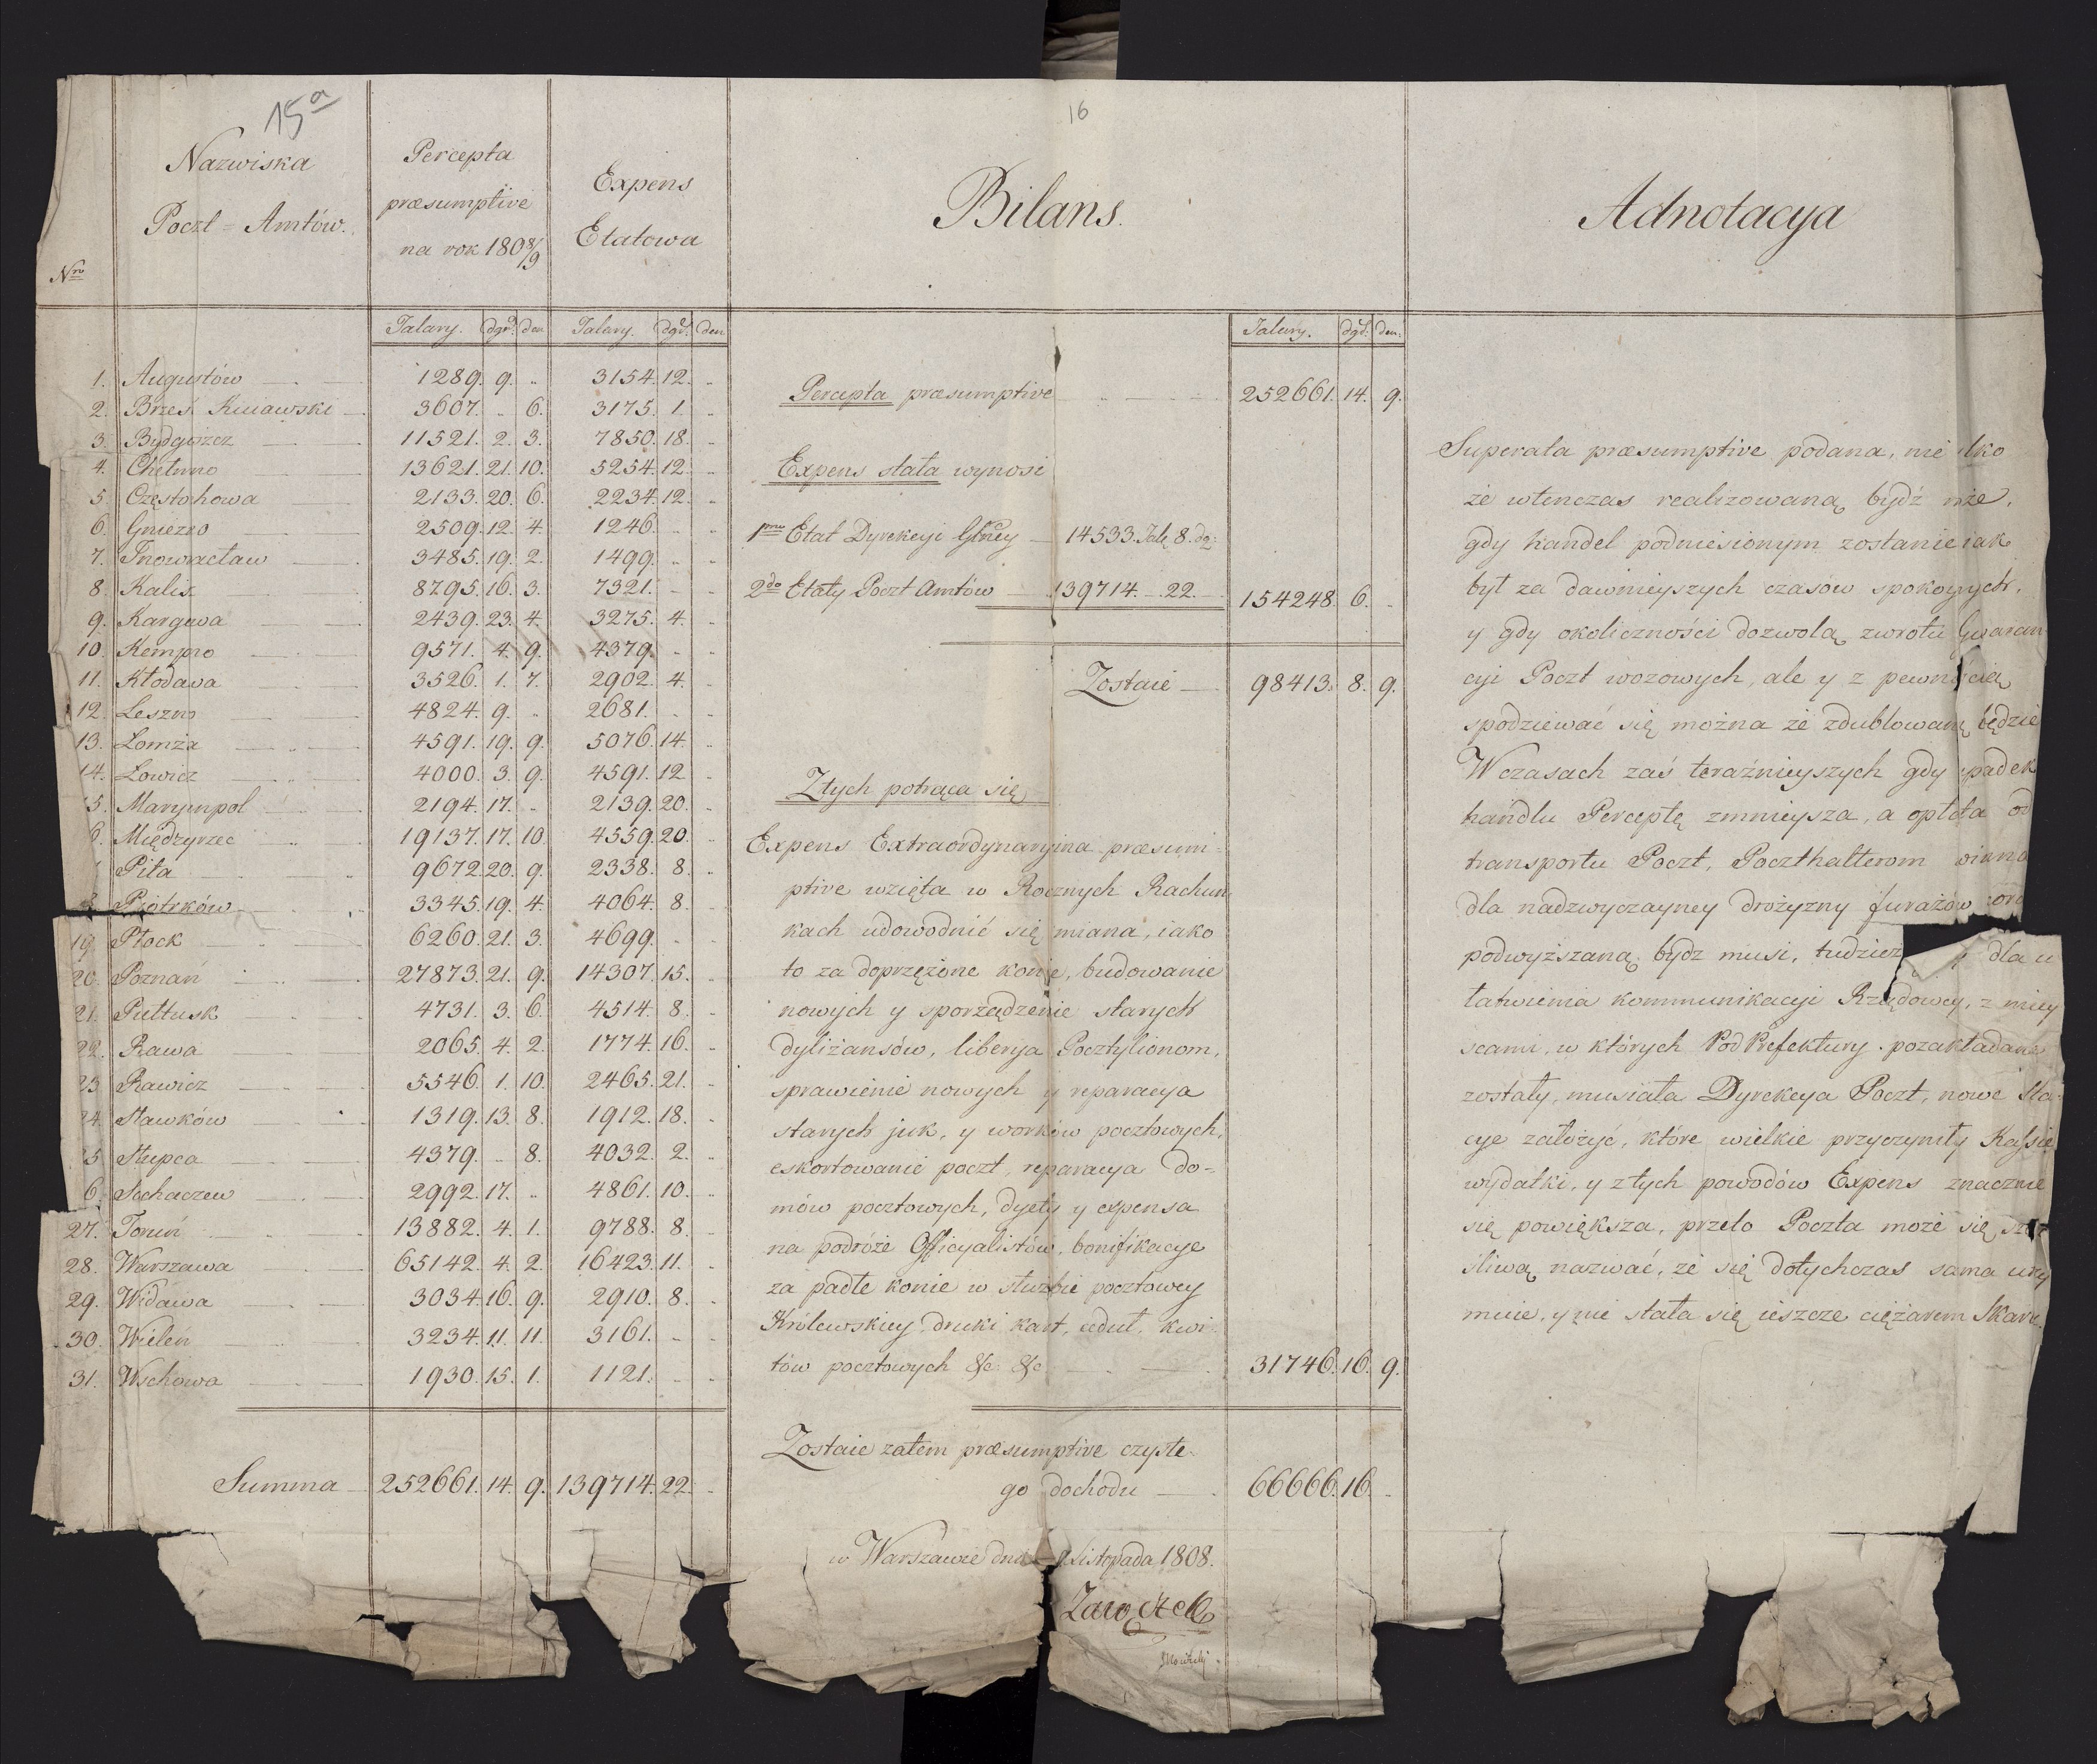 15a
16
Nro
Nazwiska
Poczt = Amtów.
Percepta
præsumptive
na rok 1808/9
Expens
Etatowa
Bilans.
Adnotacya
Talary. dgr. den Talary. dgr. den
1. Augustów 1289. 9. .. 3154. 12. ..
2. Brześć Kuiawski 3607. .. 6. 3175. 1. ..
3. Bydgoszcz 11521. 2. 3. 7850. 18. ..
4. Chełmno 13621. 21. 10. 5254. 12. ..
5. Częstohowa 2133. 20. 6. 2234. 12. ..
6. Gniezno 2509. 12. 4. 1246. .. ..
7. Inowracław 3485. 19. 2. 1499. .. ..
8. Kalisz 8795. 16. 3. 7321. .. ..
9. Kargowa 2439. 23. 4. 3275. 4. ..
10. Kempno 9571. 4. 9. 4379. .. ..
11. Kłodawa 3526. 1. 7. 2902. 4. ..
12. Leszno 4824. 9. .. 2681. .. ..
13. Łomża 4591. 19. 9. 5076. 14. ..
14. Łowicz 4000. 3. 9. 4591. 12 ..
5. Marympol 2194. 17. .. 2139. 20. ..
6. Międzyrzec 19137. 17. 10. 4559. 20. ..
Piła 9672. 20. 9. 2338. 8. ..
8. Piotrków 3345. 19. 4. 4064. 8. ..
19. Płock 6260. 21. 3. 4699. .. ..
20. Poznań 27873. 21. 9. 14307. 15. ..
21. Pułtusk 4731. 3. 6. 4514. 8. ..
22. Rawa 2065. 4. 2. 1774. 16. ..
23 Rawicz 5546. 1. 10. 2465. 21. ..
24. Sławków 1319. 13. 8. 1912. 18. ..
25 Słupca 4379. .. 8. 4032. 2. ..
6. Sochaczew 2992. 17. .. 4861. 10. ..
27. Toruń 13882. 4. 1. 9788. 8. ..
28. Warszawa 65142. 4. 2. 16423. 11. ..
29. Widawa 3034. 16. 9. 2910. 8. ..
30. Wieleń 3234. 11. 11. 3161. .. ..
31. Wschowa 1930. 15. 1. 1121. .. ..
Summa 252661. 14. 9. 139714. 22. ..
Talary. dgr. den:
Percepta præsumptive 252661. 14. 9.
Expens stała wynosi
1mo Etat Dyrekcyi Głney 14533. Tal. 8. dg:
2do Etaty Poczt Amtów 139714. 22. 154248. 6. ..
Zostaie 98413. 8. 9.
Z tych potrąca się
Expens Extraordynaryina præsum=
ptive wzięta w Rocznych Rachun
kach udowodnić się miana, iako
to za doprzężone konie, budowanie
nowych y sporządzenie starych
dyliżansów, liberya Pocztylionom,
sprawienie nowych y reparacya
starych juk, y worków pocztowych,
eskortowanie poczt, reparacya do=
mów pocztowych, dyety y expensa
na podróże Officyalistów, bonifikacye
za padłe konie w służbie pocztowey
Królewskiey, druki kart, cduł, kwi=
tów pocztowych &c: &c 31746. 16. 9.
Zostaie zatem præsumptive czyste=
go dochodu 66666. 16. ..
w Warszawie dnia Listopada 1808.
Zaiączek
Superata præsumptive podana, nie lko
że wtenczas realizowaną bydź może,
gdy handel podniesionym zostanie iak
był za dawnieyszych czasów spokoynych,
y gdy okoliczności dozwolą zwrotu Gwaran=
cyi Poczt wozowych, ale y z pewnością
spodziewać się można że zdublowaną będzie
W czasach zaś teraźnieyszych gdy upadek
handlu Perceptę zmnieysza, a opłata od
transportu Poczt, Poczthalterom winna
dla nadzwyczayney drożyzny furażów
podwyższaną bydz musi, tudzież dla u
łatwienia kommunikacyi Rządowey, z miey
scami, w których Pod Prefektury pozakładane
zostały, musiała Dyrekcya Poczt, nowe Sta=
cye założyć, które wielkie przyczyniły Kassie
wydatki, y z tych powodów Expens znacznie
się powiększa, przeto Poczta może się szczę
śliwą nazwać, że się dotychczas sama utrzy
muie, y nie stała się ieszcze ciężarem Skarb.